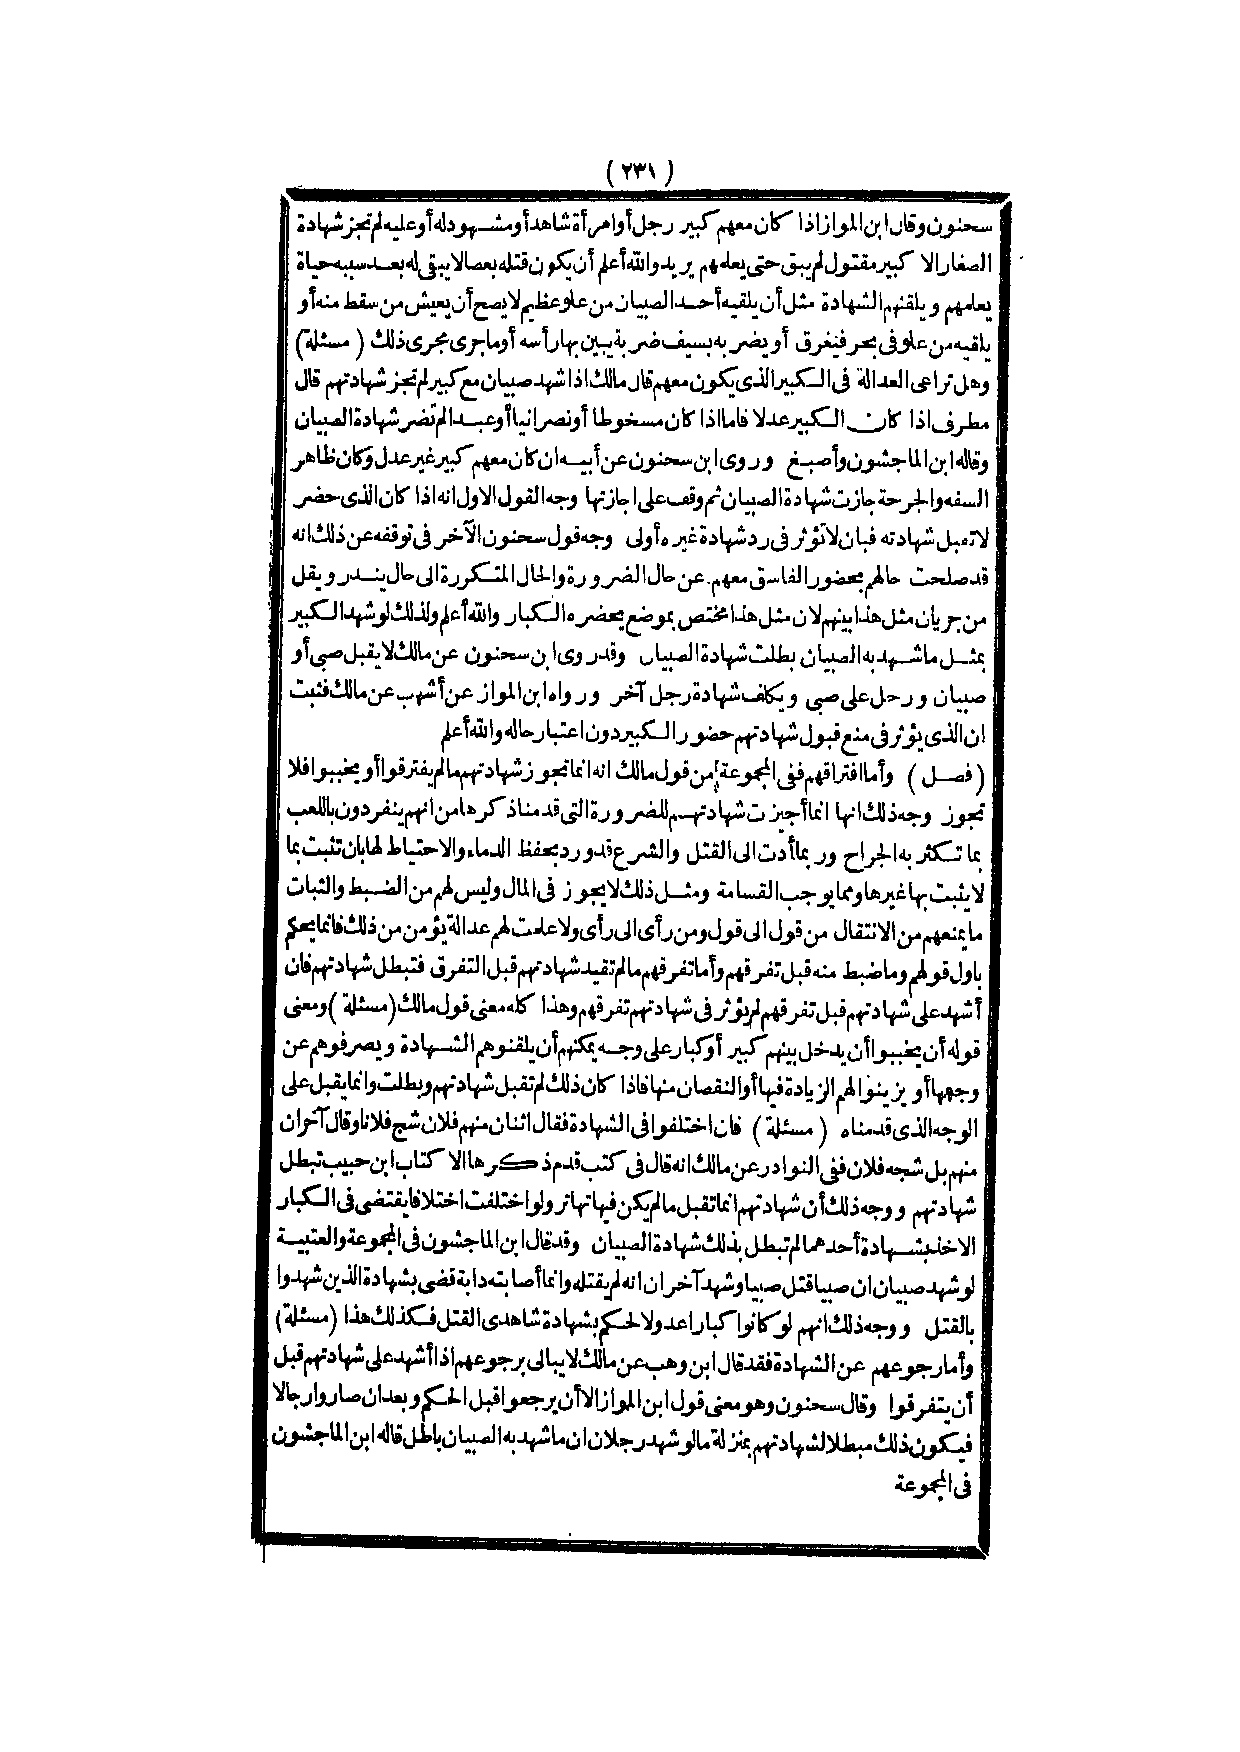 ( ٢٣١ )
سحنون وقال ابن المواز اذا كان معهم كبير رجل أو امرأة شاهد أو مشهود له أو عليه لم تجز شهادة
الصغار الا كبير مقتول لم يبق حتى يعلمهم يريد والله أعلم أن يكون قتله بعصا لا يبقى له بعد سببه حياة
يعلمهم ويلقنهم الشهادة مثل أن يلقيه أحد الصبيان من علو عظيم لا يصح أن يعيش من سقط منه أو
يلقيه من علو فى بحر فيغرق أو يضربه بسيف ضربة يبين بها رأسه أو ما جرى مجرى ذلك ( مسئلة )
وهل تراعى العدالة فى الكبير الذى يكون معهم قال مالك اذا شهد صبيان مع كبير لم تجز شهادتهم قال
مطرف اذا كان الكبير عدلا فاما اذا كان مسخوطا أو نصرانيا أو عبدا لم تضر شهادة الصبيان
وقاله ابن الماجشون وأصبغ وروى ابن سحنون عن أبيه ان كان معهم كبير غير عدل وكان ظاهر
السفه والجرحة جازت شهادة الصبيان ثم وقف على اجازتها وجه القول الاول انه اذا كان الذى حضر
لا تقبل شهادته فبان لا تؤثر فى رد شهادة غيره أولى وجه قول سحنون الآخر فى توقفه عن ذلك انه
قد صلحت حالهم بحضور الفاسق معهم عن حال الضرورة والحال المتكررة الى حال يندر ويقل
من جريان مثل هذا بينهم لان مثل هذا مختص بموضع يحضره الكبار والله أعلم ولذلك لو شهد الكبير
بمثل ما شهد به الصبيان بطلت شهادة الصبيان وقد روى ابن سحنون عن مالك لا يقبل صبى أو
صبيان ورجل على صبى ويكلف شهادة رجل آخر ورواه ابن المواز عن أشهب عن مالك فثبت
ان الذى يؤثر فى منع قبول شهادتهم حضور الكبير دون اعتبار حاله والله أعلم
( فصل ) وأما افتراقهم ففى المجموعة من قول مالك انه انما تجوز شهادتهم ما لم يفترقوا أو يخببوا فلا
تجوز وجه ذلك انها انما أجيزت شهادتهم للضرورة التى قدمنا ذكرها من انهم ينفردون باللعب
بما تكثر به الجراح وربما أدت الى القتل والشرع قد ورد بحفظ الدماء والاحتياط لها بان تثبت بما
لا يثبت بها غيرها ومما يوجب القسامة ومثل ذلك لا يجوز فى المال وليس لهم من الضبط والثبات
ما يمنعهم من الانتقال من قول الى قول ومن رأى الى رأى ولا علمت لهم عدالة يؤمن من ذلك فانما يحكم
باول قولهم وما ضبط منه قبل تفرقهم وأما تفرقهم ما لم تقيد شهادتهم قبل التفرق فتبطل شهادتهم فان
أشهد على شهادتهم قبل تفرقهم لم يؤثر فى شهادتهم تفرقهم وهذا كله معنى قول مالك ( مسئلة ) ومعنى
قوله أن يخببوا أن يدخل بينهم كبير أو كبار على وجه يمكنهم أن يلقنوهم الشهادة ويصرفوهم عن
وجهها أو يزينوا لهم الزيادة فيها أو النقصان منها فاذا كان ذلك لم تقبل شهادتهم وبطلت وانما يقبل على
الوجه الذى قدمناه ( مسئلة ) فان اختلفوا فى الشهادة فقال اثنان منهم فلان شج فلانا وقال آخران
منهم بل شجه فلان ففى النوادر عن مالك انه قال فى كتب قدم ذكرها الا كتاب ابن حبيب تبطل
شهادتهم ووجه ذلك أن شهادتهم انما تقبل ما لم يكن فيها تهاتر ولو اختلفت اختلافا يقتضى فى الكبار
الاخذ بشهادة أحدهما لم تبطل بذلك شهادة الصبيان وقد قال ابن الماجشون فى المجموعة والعتبية
لو شهد صبيان ان صبيا قتل صبيا وشهد آخران انه لم يقتله وانما أصابته دابة قضى بشهادة الذين شهدوا
بالقتل ووجه ذلك انهم لو كانوا كبارا عدولا لحكم بشهادة شاهدى القتل فكذلك هذا ( مسئلة )
وأما رجوعهم عن الشهادة فقد قال ابن وهب عن مالك لا يبالى برجوعهم اذا أشهد على شهادتهم قبل
أن يتفرقوا وقال سحنون وهو معنى قول ابن المواز الا أن يرجعوا قبل الحكم وبعد ان صاروا رجالا
فيكون ذلك مبطلا لشهادتهم بمنزلة ما لو شهد رجلان ان ما شهد به الصبيان باطل قاله ابن الماجشون
فى المجموعة